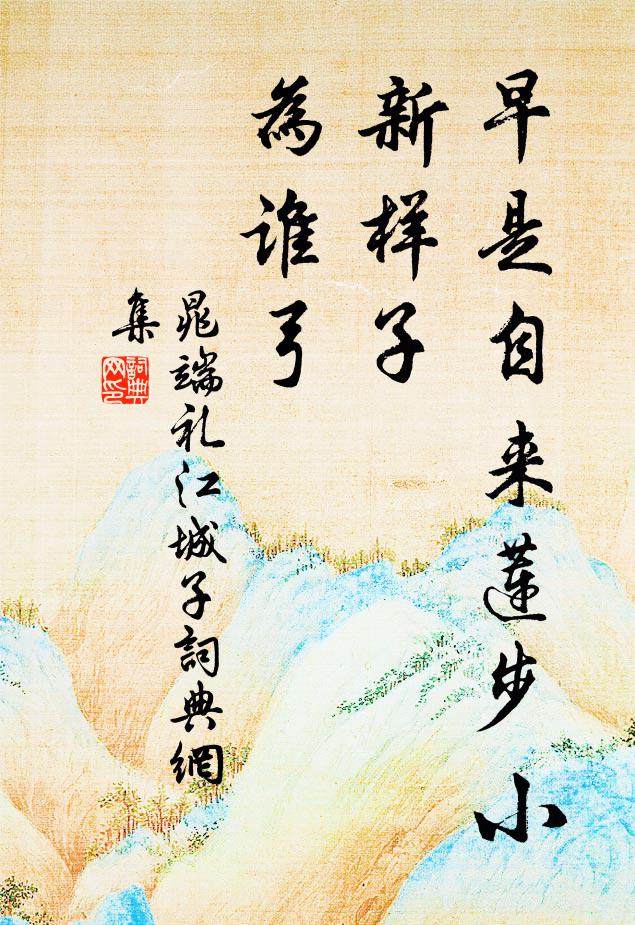 早是自来蓮步小
新样子
為谁弓
晁端礼江城子詞典網
集
詞典
网印